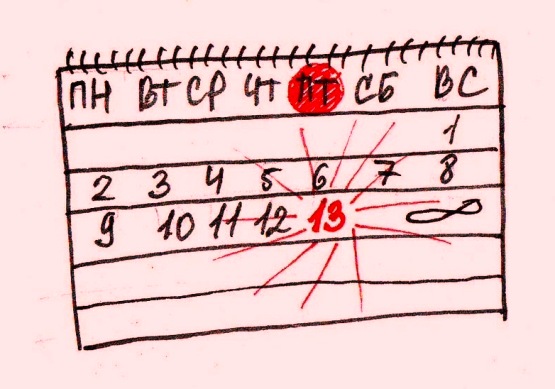 ПН ВТ СР ЧТ ПТ СБ ВС
1
2 3 4 5 6 7 8
9 10 11 12 13 ∞